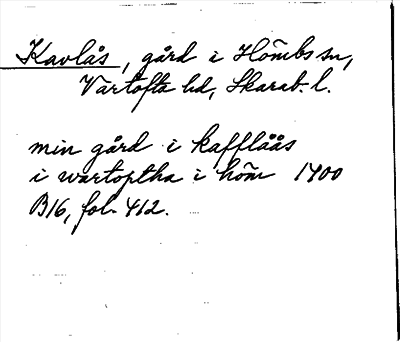 Kavlås, gård i Hömbs sn,
Vartofta hd, Skarab. l.
min gård i kafflåås
i wartoptha i höm 1400
B16, fol. 412.